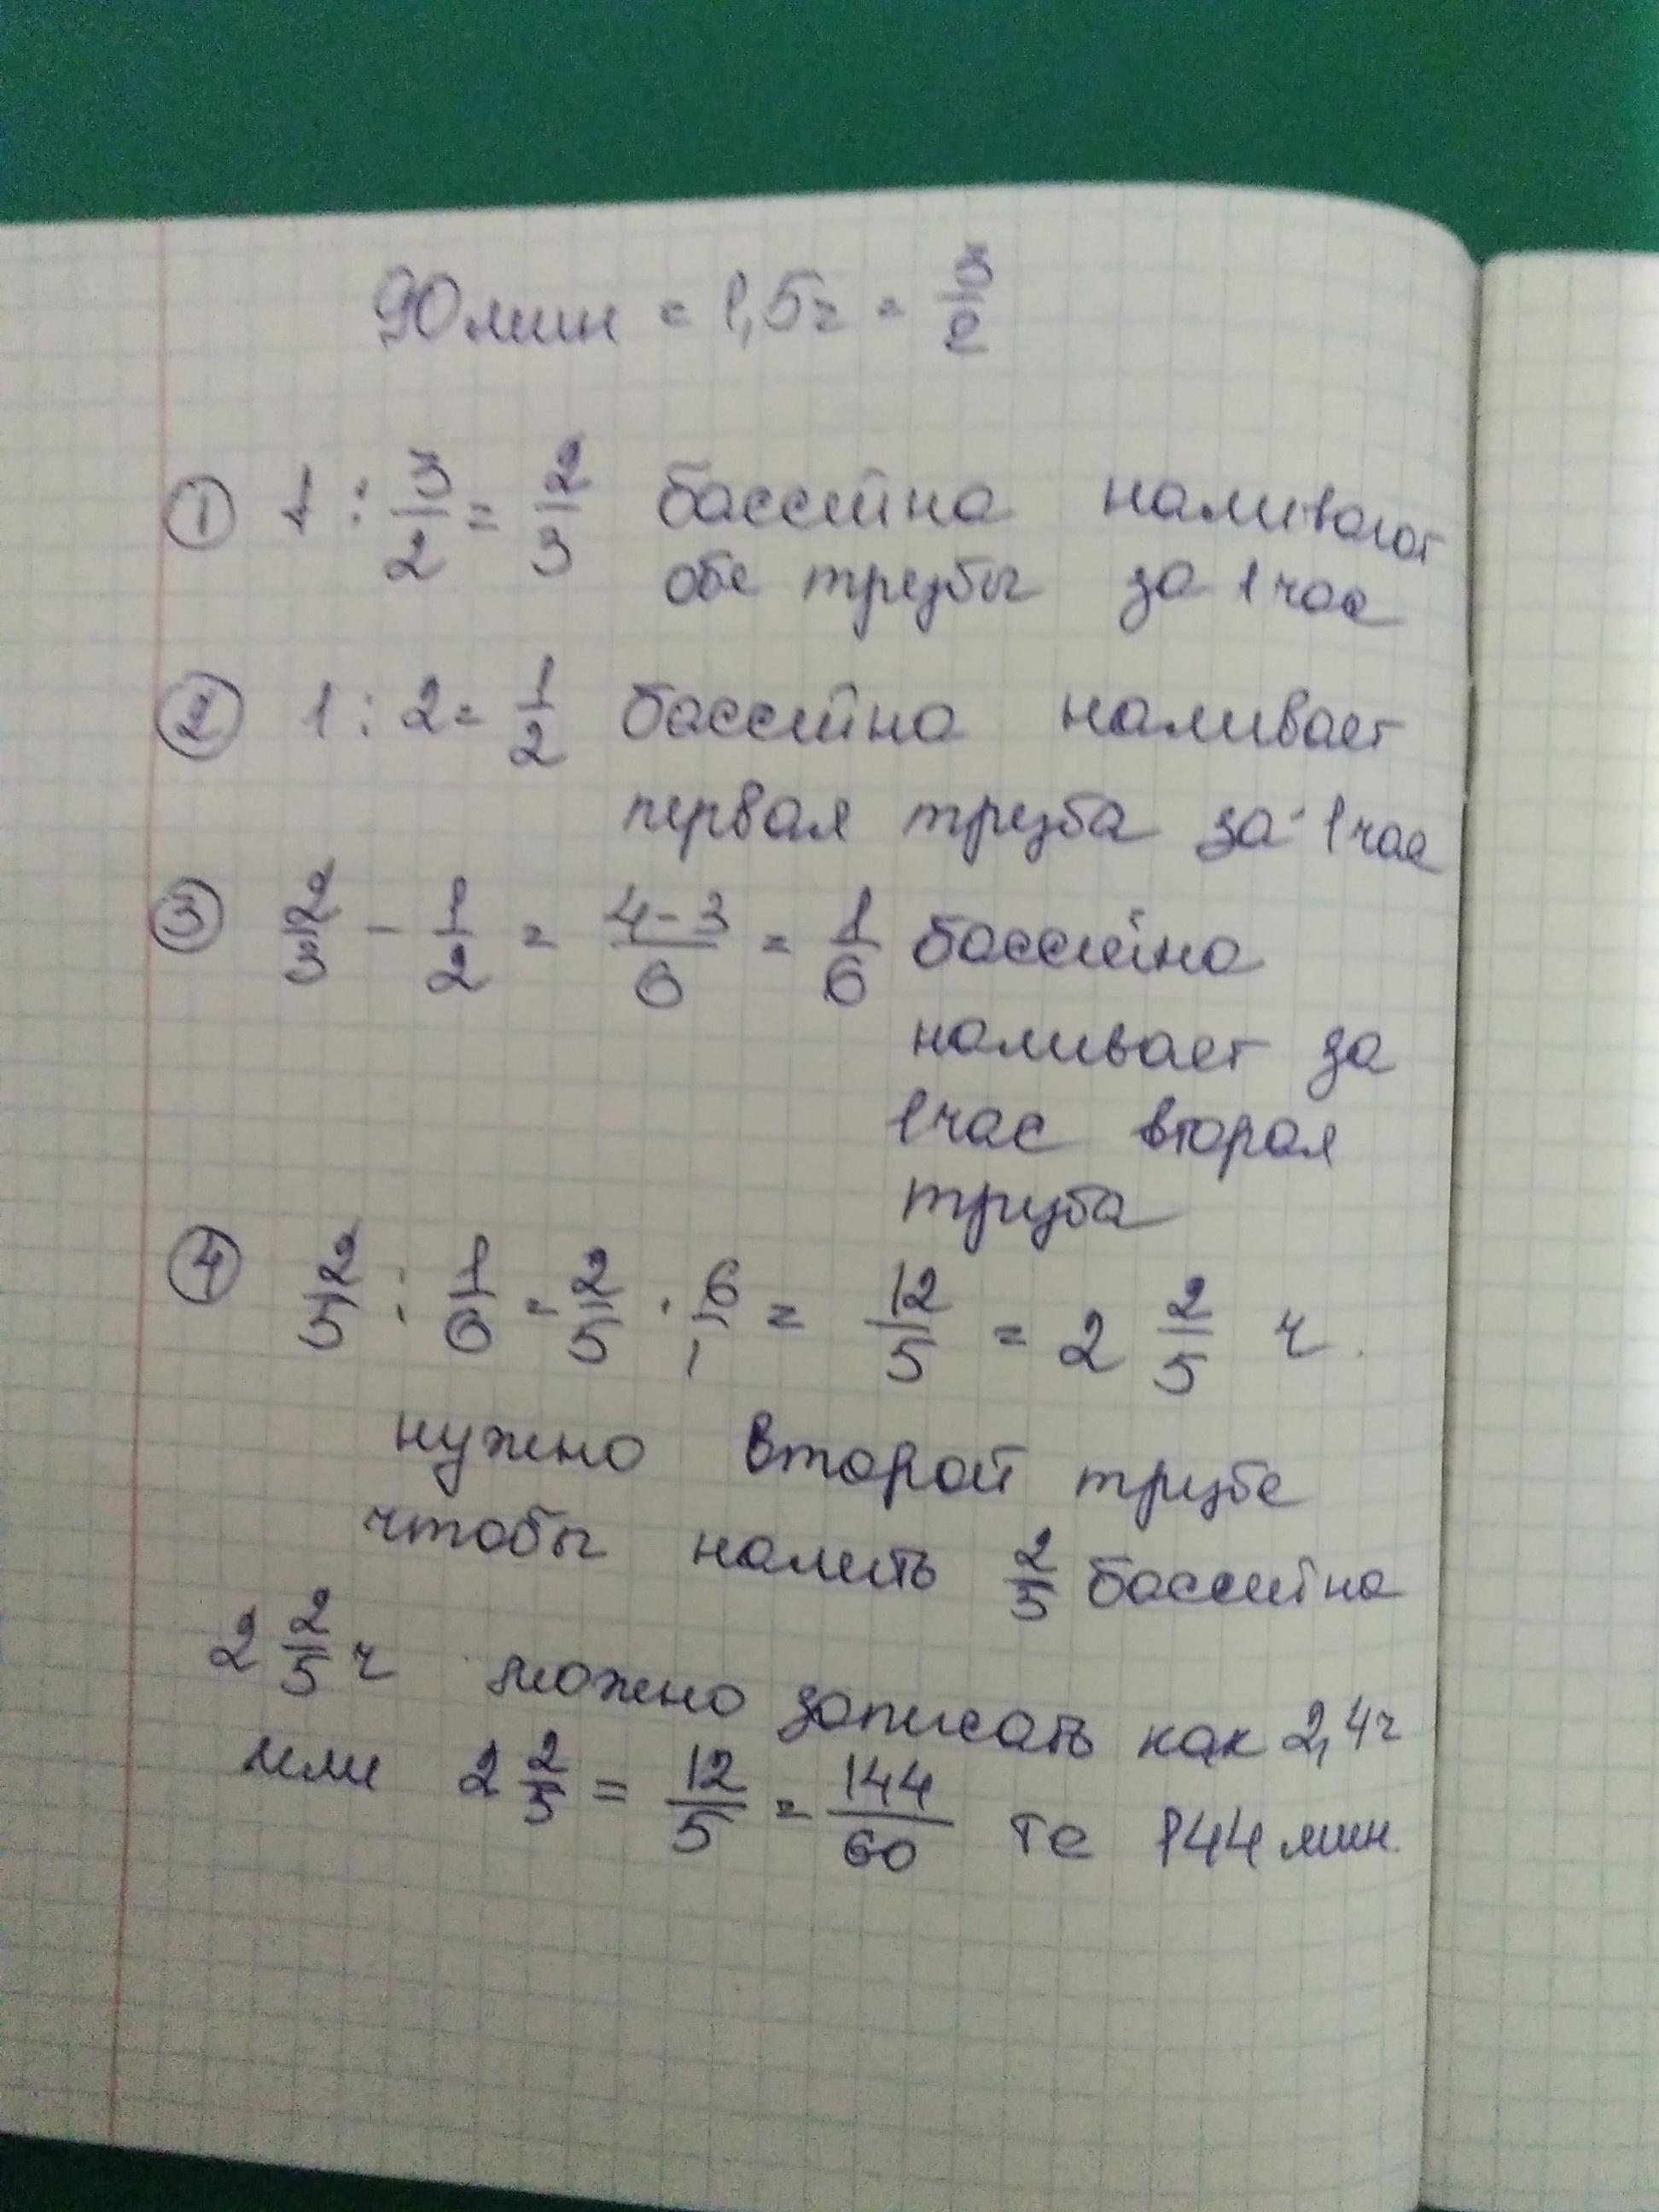 90 мин = 1,5ч = 3/2
① 1 : 3/2 = 2/3 бассейна наливают
обе трубы за 1 час
② 1 : 2 = 1/2 бассейна наливает
первая труба за 1 час
③ 2/3 - 1/2 = 4-3/6 = 1/6 бассейна
наливает за
1 час вторая
труба
④ 2/5 : 1/6 = 2/5 · 6/1 = 12/5 = 2 2/5 ч.
нужно второй трубе
чтобы налить 2/5 бассейна
2 2/5 ч можно записать как 2,4ч
или 2 2/5 = 12/5 = 144/60 те 144 мин.